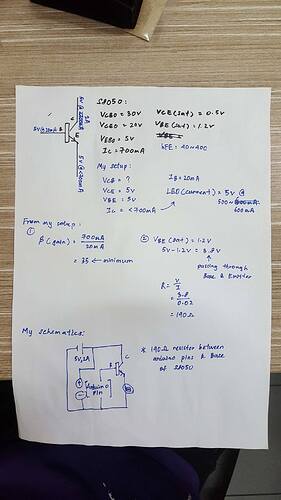 S8050:
VCBO = 30V
VCEO = 20V
VEBO = 5V
IC = 700mA
VCE(sat) = 0.5V
VBE(sat) = 1.2V
hFE: 40~400
C
2A
B
E
My setup:
VCB = ?
VCE = 5V
VBE = 5V
IC = <700mA
IB = 20mA
LED(current) = 5V @
600mA
From my setup:
①
β(gain) = 700mA
20mA
= 35 ← minimum
② VBE(sat) = 1.2V
5V - 1.2V = 3.8V
passing through
Base & Emitter
R = V
I
= 3.8
0.02
= 190Ω
My schematics:
5V, 2A
Arduino
Pin
B
C
* 190Ω resistor between
arduino pins & Base
of S8050